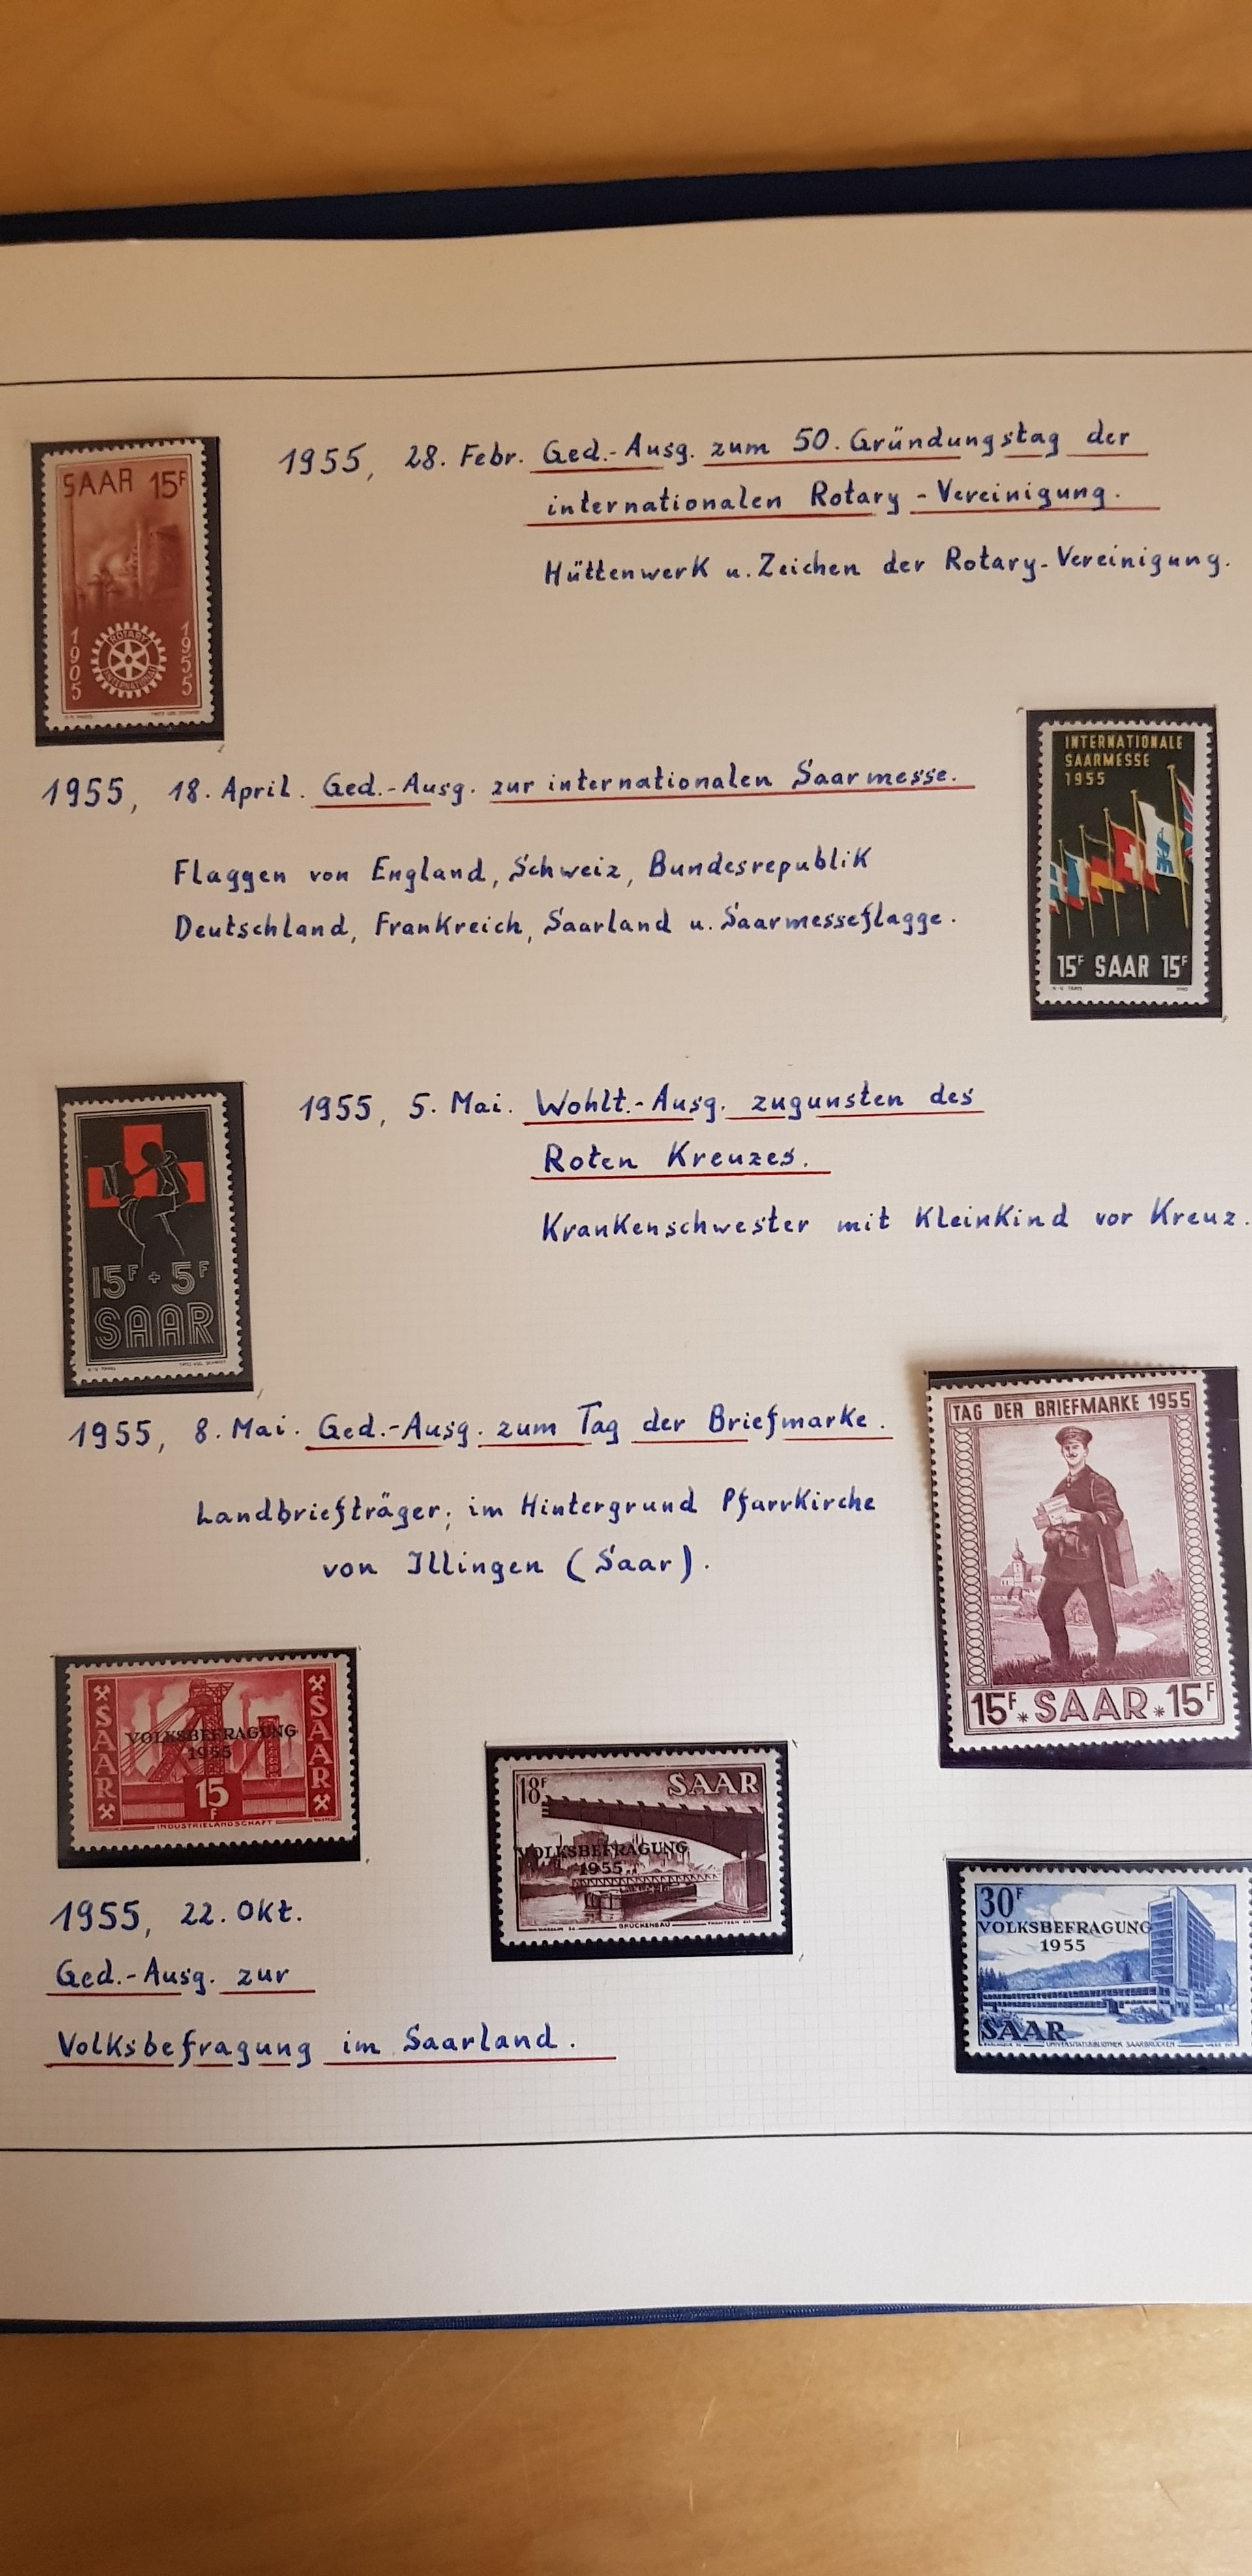 SAAR 15F
1905
1955
ROTARY
INTERNATIONAL
1955, 28. Febr. Ged.-Ausg. zum 50. Gründungstag der
internationalen Rotary-Vereinigung.
Hüttenwerk u. Zeichen der Rotary-Vereinigung.
INTERNATIONALE
SAARMESSE
1955
15F SAAR 15F
1955, 18. April. Ged.-Ausg. zur internationalen Saarmesse.
Flaggen von England, Schweiz, Bundesrepublik
Deutschland, Frankreich, Saarland u. Saarmesseflagge.
15F + 5F
SAAR
1955, 5. Mai. Wohlt.-Ausg. zugunsten des
Roten Kreuzes.
Krankenschwester mit Kleinkind vor Kreuz.
1955, 8. Mai. Ged.-Ausg. zum Tag der Briefmarke.
Landbriefträger; im Hintergrund Pfarrkirche
von Illingen (Saar).
TAG DER BRIEFMARKE 1955
15F * SAAR * 15F
SAAR
VOLKSBEFRAGUNG
1955
15
F
SAAR
INDUSTRIELANDSCHAFT
18F SAAR
VOLKSBEFRAGUNG
1955
BRÜCKENBAU
30F
VOLKSBEFRAGUNG
1955
SAAR
UNIVERSITÄTSBIBLIOTHEK SAARBRÜCKEN
1955, 22. Okt.
Ged.-Ausg. zur
Volksbefragung im Saarland.